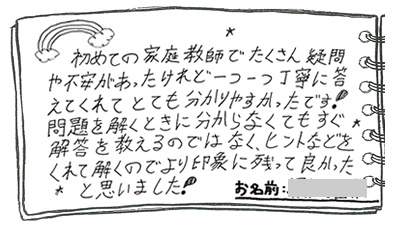 初めての家庭教師でたくさん疑問
や不安があったけれど一つ一つ丁寧に答
えてくれてとても分かりやすかったです!
問題を解くときに分からなくてもすぐ
解答を教えるのではなく、ヒントなどを
くれて解くのでより印象に残って良かった
と思いました!
お名前: